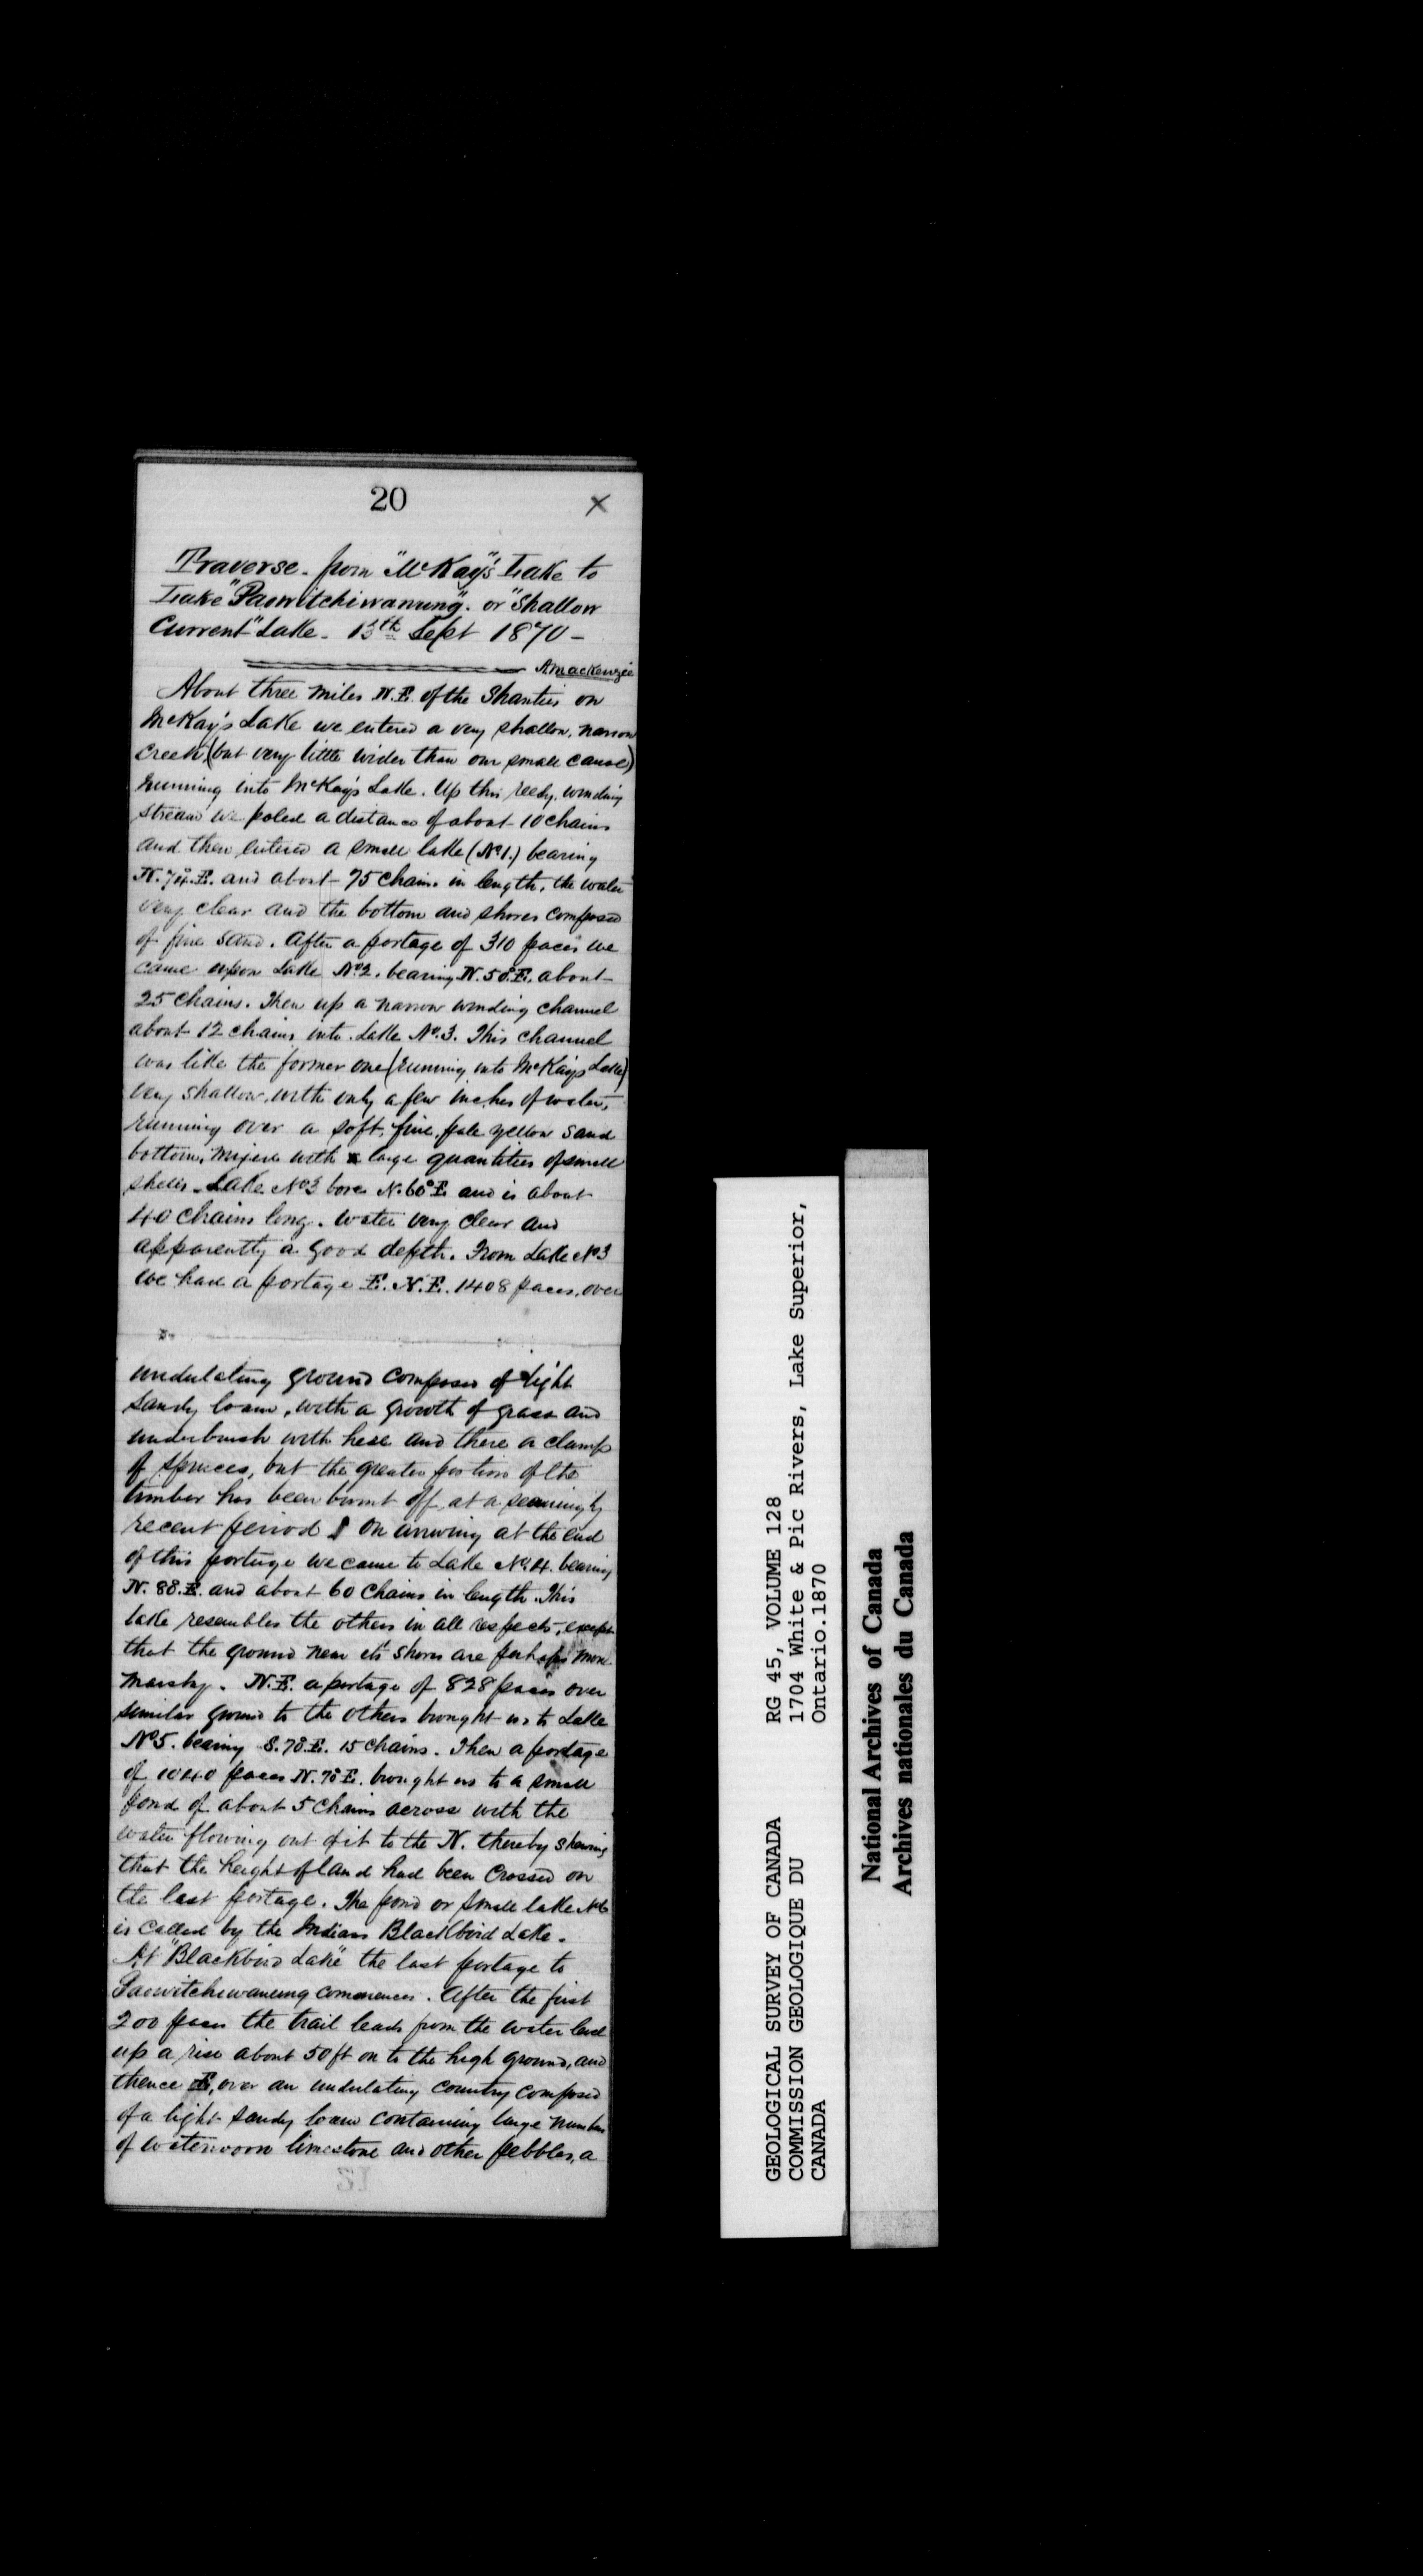 20
X
Traverse - from "McKay's" Lake to
Lake "Paowitchiwanung". or "Shallow
Current" Lake - 13th Sept 1870 -
AMacKenzie
About three miles N.E. of the Shanties on
McKay's Lake we entered a very shallow, narrow
creek (but very little wider than our small canoe)
running into McKay's Lake. Up this reedy, winding
stream we poled a distance of about 10 chains
and then entered a small lake (No1.) bearing
N. 74°. E. and about 75 chains in length, the water
very clear and the bottom and shores composed
of fine sand. After a portage of 310 paces we
came upon Lake No2. bearing N. 50°. E. about
25 chains. Then up a narrow winding channel
about 12 chains into Lake No.3. This channel
was like the former one (running into McKay's Lake)
very shallow, with only a few inches of water,
running over a soft, fine, pale yellow sand
bottom, mixed with large quantities of small
shells. Lake No3 bore N. 60° E. and is about
40 chains long. water very clear and
apparently a good depth. From Lake No3
we had a portage E.N.E. 1408 paces, over
undulating ground composed of light
sandy loam, with a growth of grass and
underbrush with here and there a clump
of spruces, but the greater portion of the
timber has been burnt off at a seemingly
recent period On arriving at the end
of this portage we came to Lake No.4. bearing
N. 88°. E. and about 60 chains in length. This
lake resembles the others in all respects, except
that the ground near its shores are perhaps more
marshy. N.E. a portage of 828 paces over
similar ground to the others brought us to Lake
No5. bearing S. 70°. E. 15 chains. Then a portage
of 1040 paces N. 70° E. brought us to a small
pond of about 5 chains across with the
water flowing out of it to the N. thereby shewing
that the height of land had been crossed on
the last portage. The pond or small lake No6
is called by the Indians Blackbird Lake.
At "Blackbird Lake" the last portage to
Paowitchiwanung commences. After the first
200 paces the trail leads from the water level
up a rise about 50 ft on to the high ground, and
thence E, over an undulating country composed
of a light sandy loam containing large numbers
of waterworn limestone and other pebbles, a
GEOLOGICAL SURVEY OF CANADA
COMMISSION GEOLOGIQUE DU
CANADA
RG 45, VOLUME 128
1704 White & Pic Rivers, Lake Superior,
Ontario.1870
National Archives of Canada
Archives nationales du Canada